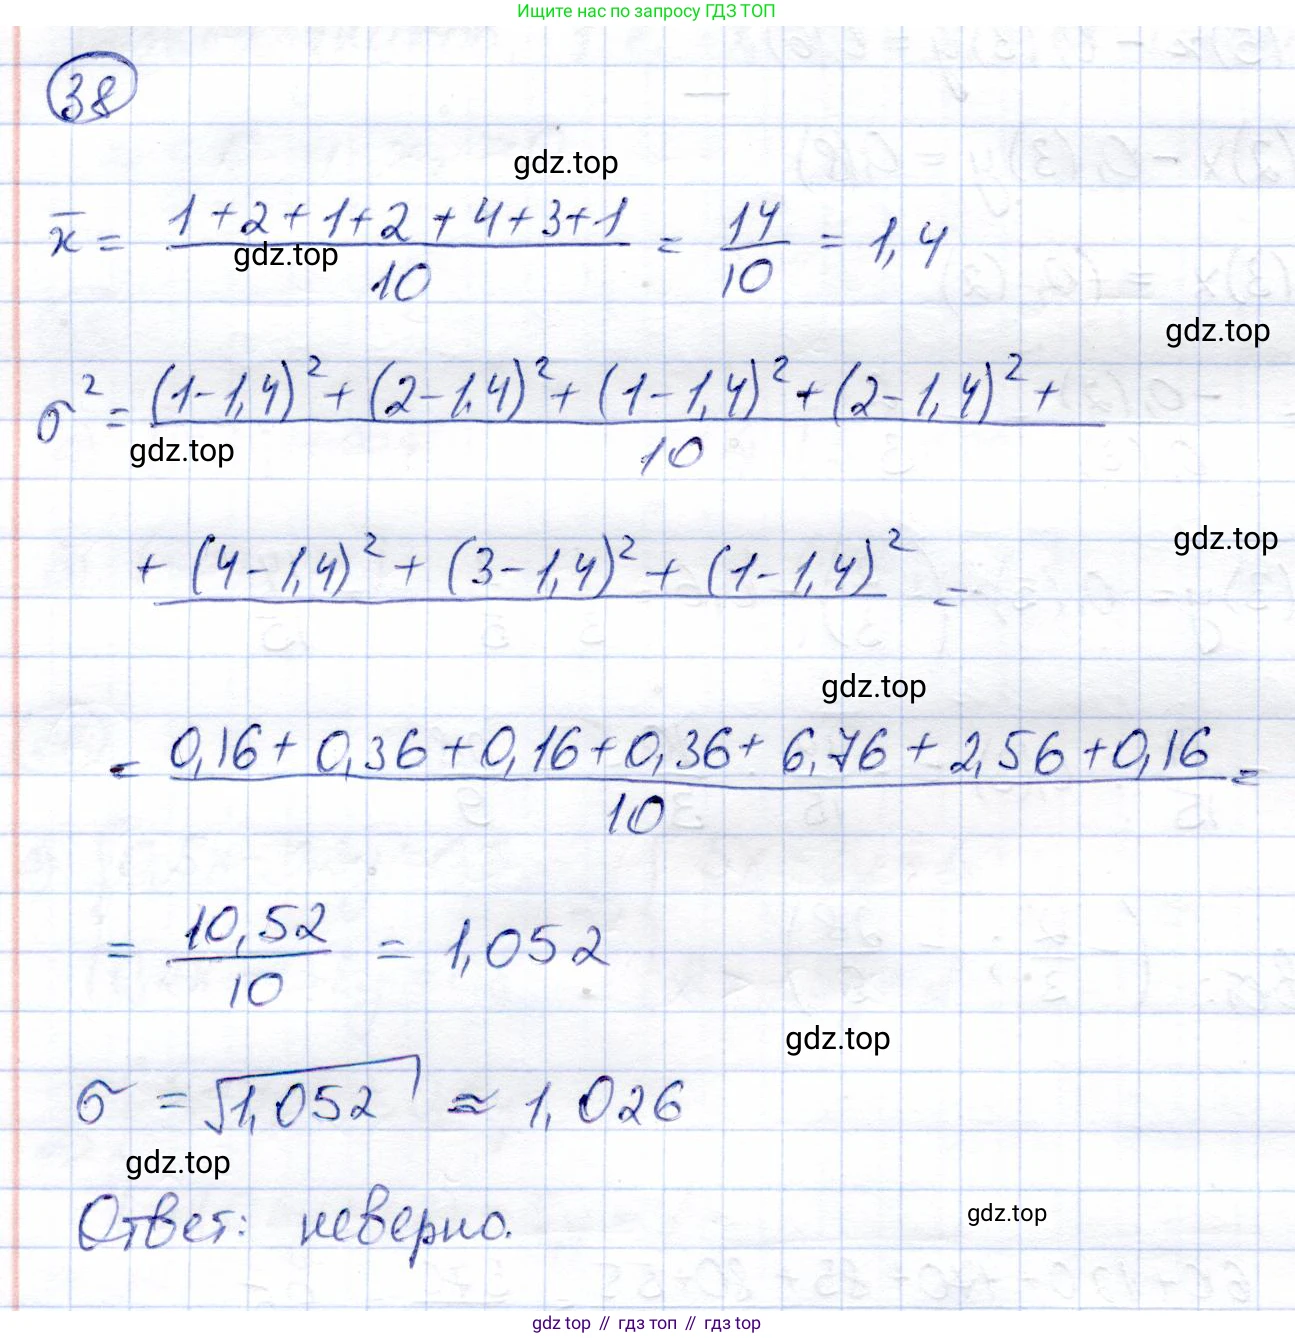 Ищите нас по запросу ГДЗ ТОП
38
gdz.top
x̄ = (1+2+1+2+4+3+1)/10 = 14/10 = 1,4
gdz.top
gdz.top
σ² = ((1-1,4)²+(2-1,4)²+(1-1,4)²+(2-1,4)²+)/10
gdz.top
+(4-1,4)²+(3-1,4)²+(1-1,4)² =
gdz.top
gdz.top
= (0,16+0,36+0,16+0,36+6,76+2,56+0,16)/10 =
= 10,52/10 = 1,052
gdz.top
σ = √1,052 ≈ 1,026
gdz.top
Ответ: неверно.
gdz.top
gdz top // гдз топ // gdz top